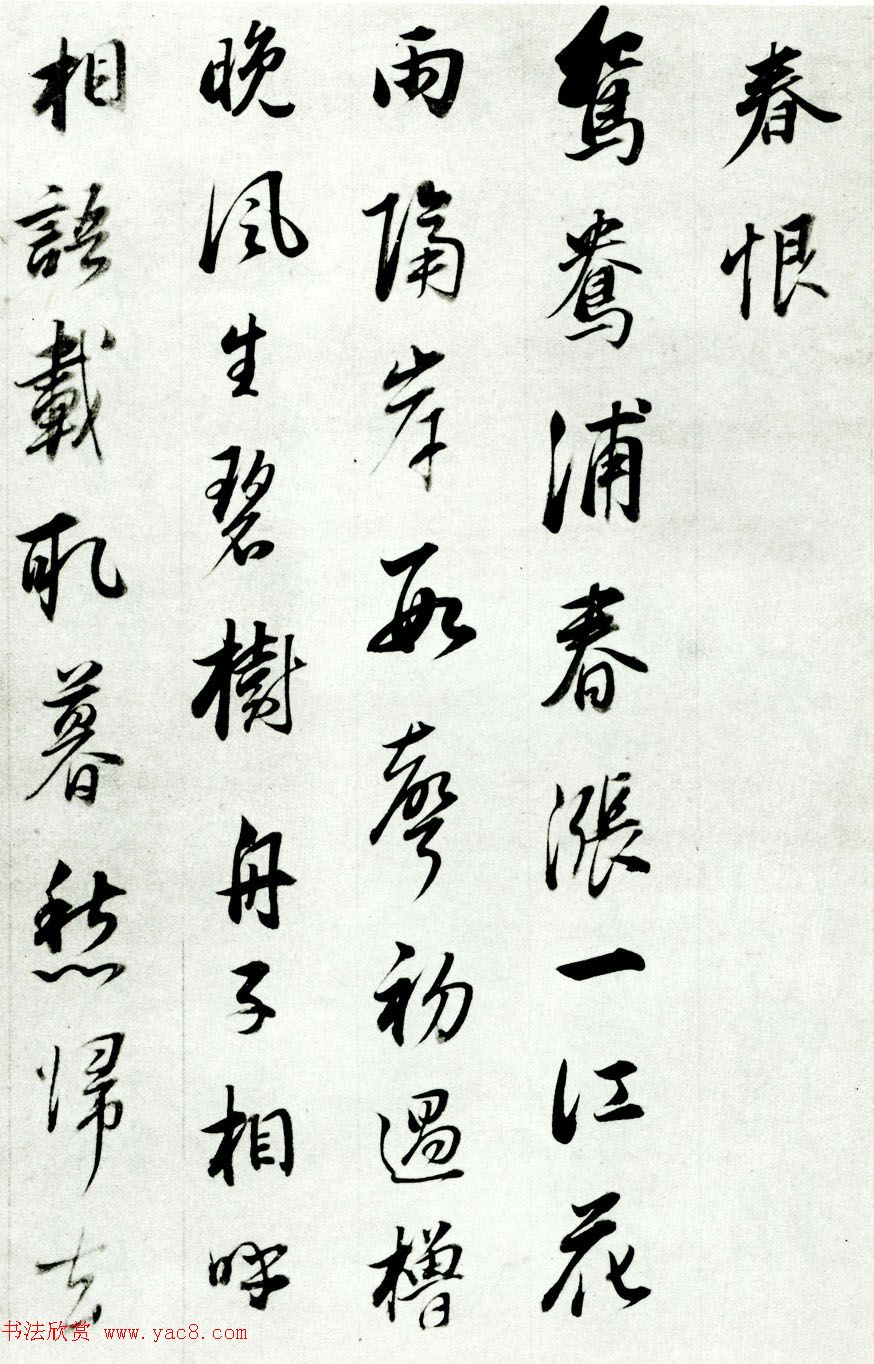 春恨
鴛鴦浦春漲一江花
雨隔岸數聲初過櫓
晚風生碧樹舟子相呼
相語載取暮愁歸去
书法欣赏 www.yac8.com